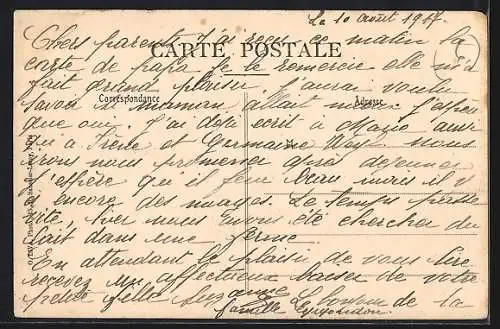 Le 10 août 19
Chers parents, j'ai reçu ce matin la
CARTE POSTALE
carte de papa je le remercie elle m'a
fait grand plaisir. J'aurai voulu
Correspondance
Adresse
savoir si maman allait mieux. J'espère
que oui. J'ai déjà écrit à Marie ainsi
qu'à et Germaine nous
irons nous promener après déjeuner
j'espère qu'il fera beau mais il y
a encore des nuages. Le temps passe
vite, hier nous avons été chercher du
lait dans une ferme
En attendant le plaisir de vous lire
recevez un affectueux baiser de votre
petite fille Suzanne
Le bonjour de la
famille